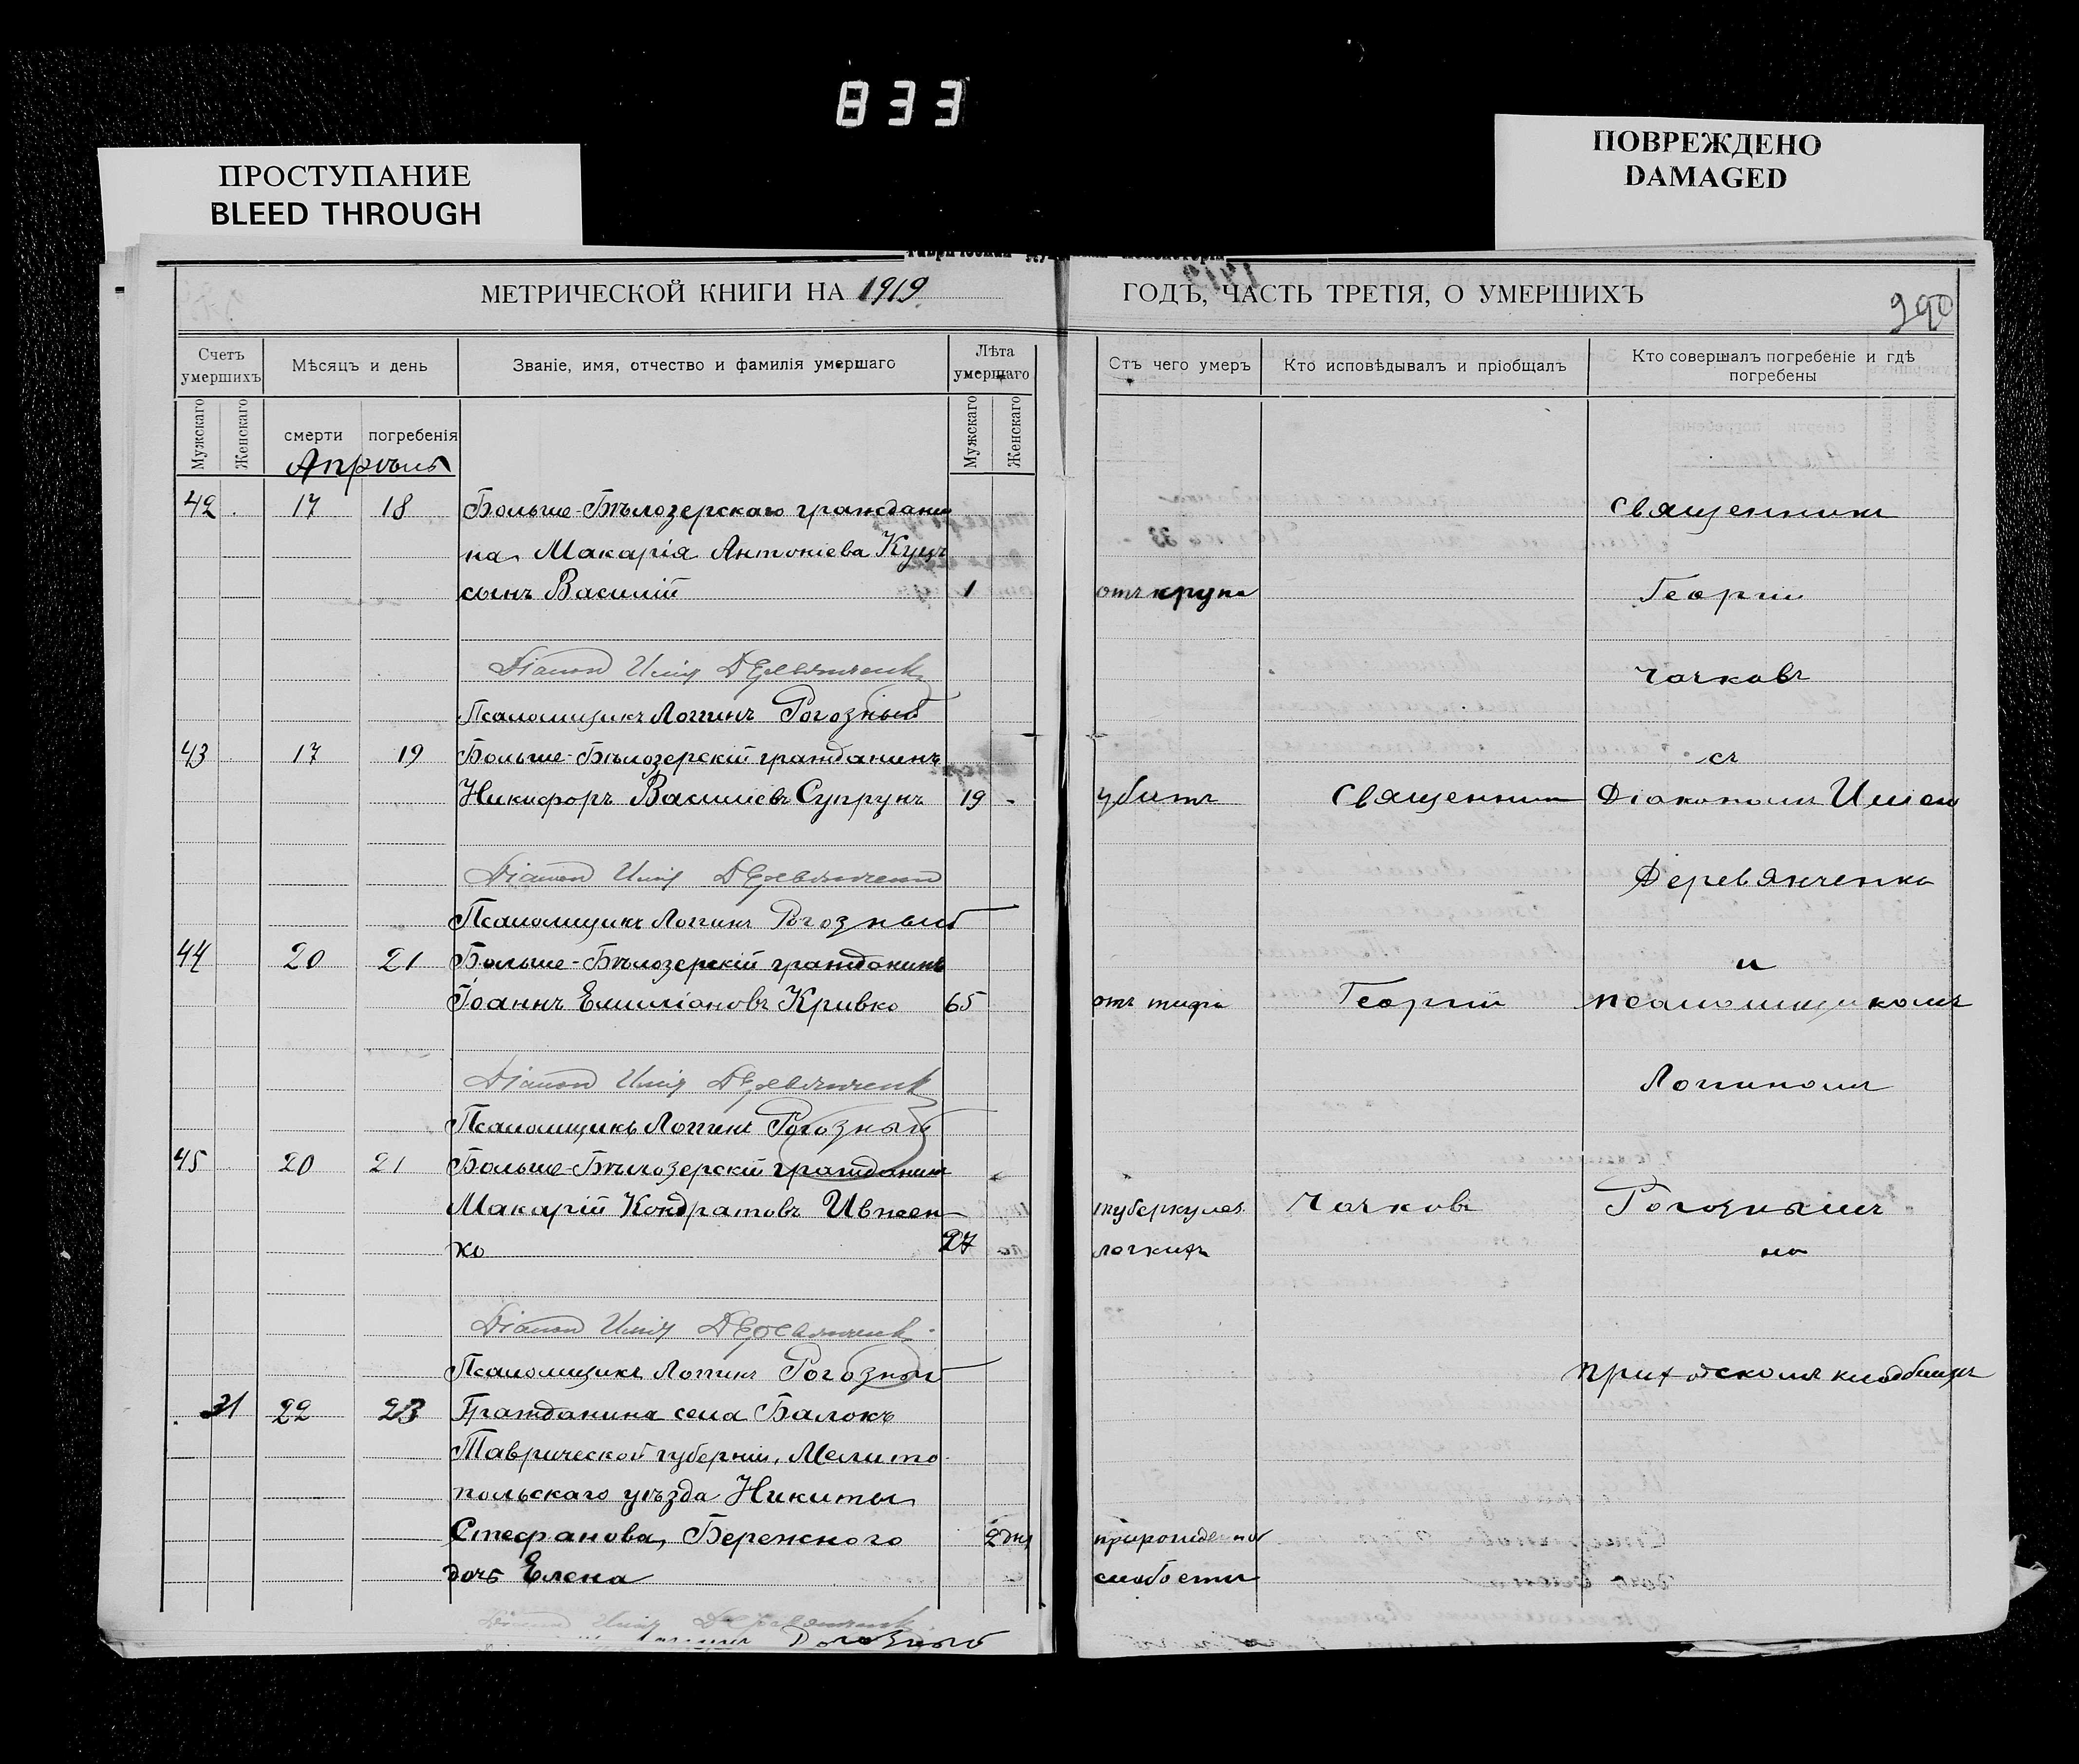 833
ПРОСТУПАНИЕ
BLEED THROUGH
ПОВРЕЖДЕНО
DAMAGED
МЕТРИЧЕСКОЙ КНИГИ НА 1919
ГОДЪ, ЧАСТЬ ТРЕТІЯ, О УМЕРШИХЪ
290
Счетъ умершихъ
Мѣсяцъ и день
Званіе, имя, отчество и фамилія умершаго
Лѣта умершаго
Отъ чего умеръ
Кто исповѣдывалъ и пріобщалъ
Кто совершалъ погребеніе и гдѣ погребены
Мужскаго
Женскаго
смерти
погребенія
Мужскаго
Женскаго
Апрѣль
42 17 18 Больше-Бѣлозерскаго граждани
на Макарія Антоніева Куцъ
сынъ Василій 1 отъ крупа
Діаконъ Деревянченко
Псаломщикъ Логгинъ Рогозный
43 17 19 Больше-Бѣлозерскій гражданинъ
Никифоръ Василіевъ Супрунъ 19 убитъ
Діаконъ Деревянченко
Псаломщикъ Логгинъ Рогозный
44 20 21 Больше-Бѣлозерскій гражданинъ
Іоаннъ Емиліановъ Кривко 65 отъ тифа
Діаконъ Деревянченко
Псаломщикъ Логгинъ Рогозный
45 20 21 Больше-Бѣлозерскій гражданинъ
Макарій Кондратовъ Ивжен-
ко 27
туберкулез
легкихъ
Діаконъ Деревянченко
Псаломщикъ Логгинъ Рогозный
31 22 23 Гражданина села Балокъ
Таврической губерніи, Мелито
польскаго уѣзда Никиты
Стефанова, Бережного 2 дня
дочь Елена
слабости
Рогозный
Священник
Георгій
Чачковъ
Священник
Георгій
Чачковъ
съ
Діакономъ
Деревянченко
и
псаломщикомъ
Логгиномъ
Рогознымъ
на
приходскомъ кладбищѣ